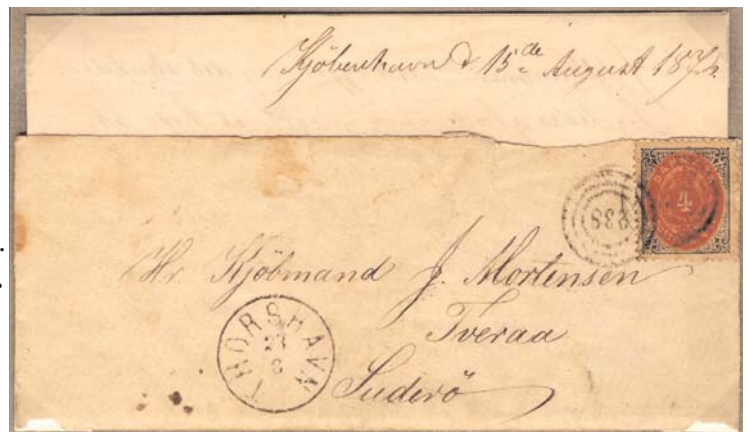 Kjöbenhavn d 15de August
238
4
Hr Kjöbmand J. Mortensen
Tveraa
Suderö
THORSHAVN
8